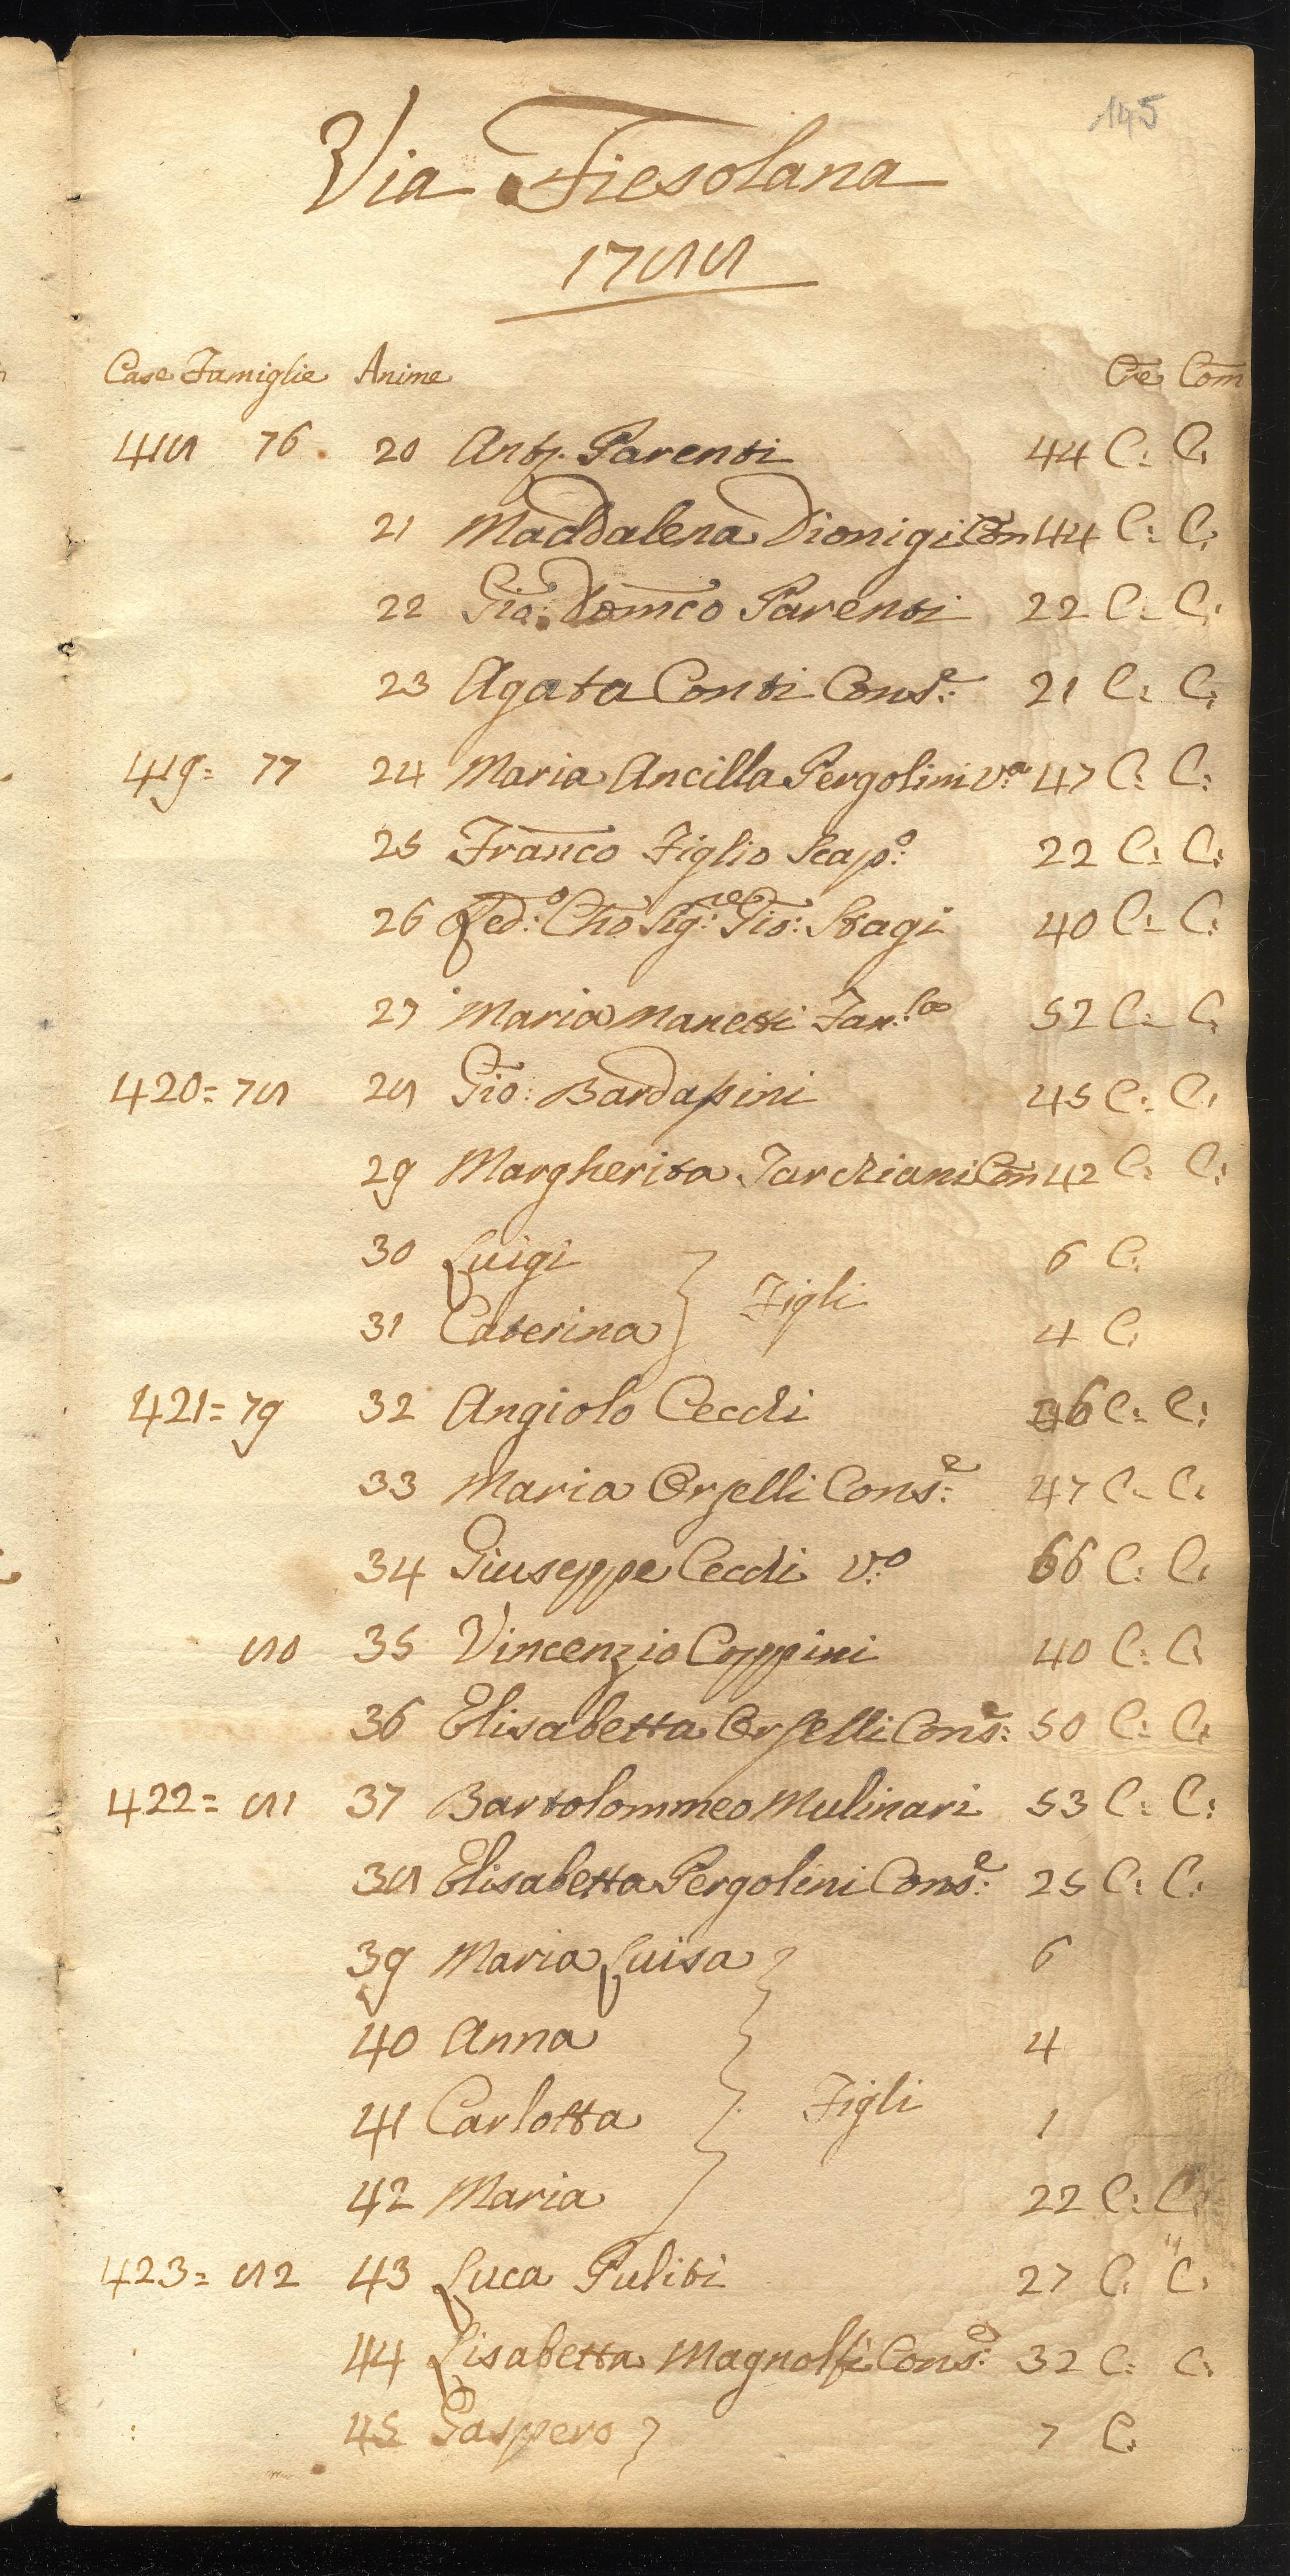 145
Via Fiesolana
1788
Case Famiglie Anime Cre Com
418 76 20 Anto. Parenti 44 C: C:
21 Maddalena Dionigi Con 44 C: C:
22 Gio: Domco Parenti 22 C: C:
23 Agata Conti Cons:e 21 C: C:
419= 77 24 Maria Ancilla Pergolini v:a 47 C: C:
25 Franco Figlio Scap:o 22 C: C:
26 Red:o Cho Sig:re Gio: Stagi 40 C: C:
27 Maria Manetti Fan:la 52 C: C:
420= 78 28 Gio: Bardassini 45 C: C:
29 Margherita Tarchiani Con 42 C: C:
30 Luigi 6 C:
Figli
31 Caterina 4 C:
421= 79 32 Angiolo Cecchi 36 C: C:
33 Maria Orselli Cons:e 47 C: C:
34 Giuseppe Cecchi v:o 66 C: C:
80 35 Vincenzio Coppini 40 C: C:
36 Elisabetta Orselli Cons: 50 C: C:
422= 81 37 Bartolommeo Mulinari 53 C: C:
38 Elisabetta Pergolini Cons:e 25 C: C:
39 Maria Luisa 6
40 Anna 4
Figli
41 Carlotta 1
42 Maria 22 C: C:
423= 82 43 Luca Puliti 27 C: C:
44 Lisabetta Magnolfi Cons:e 32 C: C:
45 Gaspero 7 C: